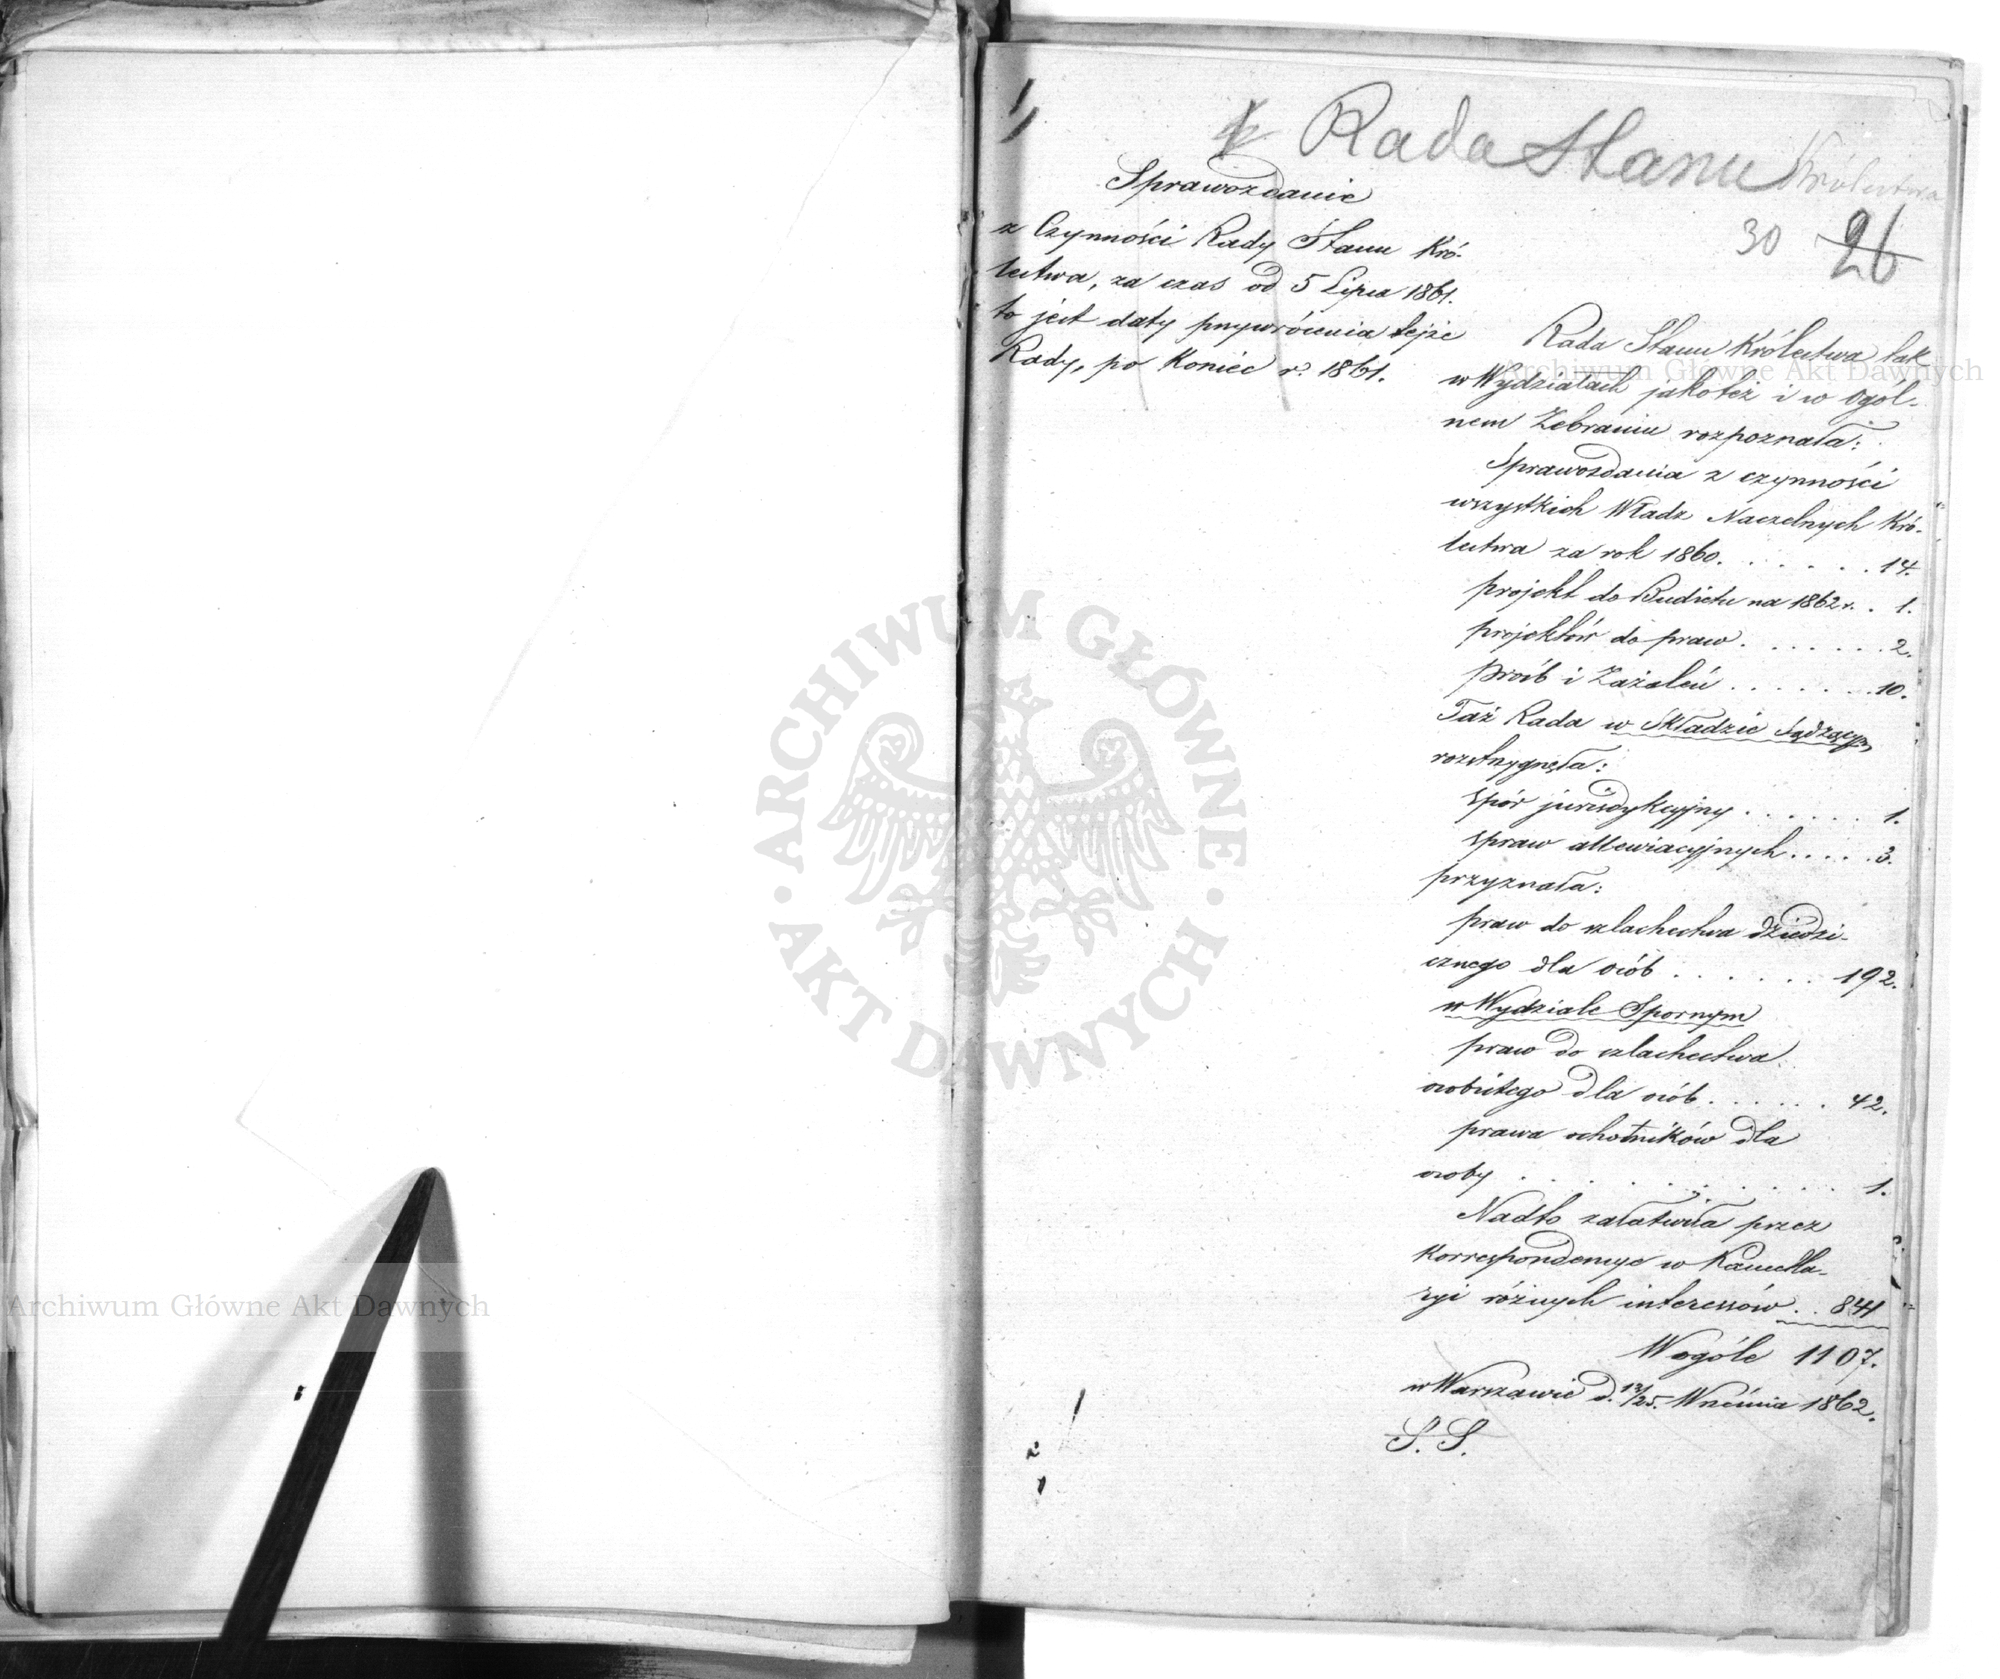 Rada Stanu Królestwa
30 26
Sprawozdanie
z Czynności Rady Stanu Kró-
lestwa, za czas od 5 Lipca 1861.
to jest daty przywrócenia tejże
Rady, po Koniec r. 1861.
Rada Stanu Królestwa tak
w Wydziałach jakoteż i w Ogól-
nem Zebraniu rozpoznała:
Sprawozdania z czynności
wszystkich Władz Naczelnych Kró-
lestwa za rok 1860. . . . . . . 14.
projekt do Budżetu na 1862 r. . 1.
projektów do praw . . . . . . . 2.
próśb i Zażaleń . . . . . . . 10.
Taż Rada w Składzie Sądzącym
rozstrzygnęła:
spór jurisdykcyjny . . . . . . 1.
spraw allewiacyjnych . . . . . 3.
przyznała:
praw do szlachectwa dziedzi-
cznego dla osób . . . . . . 192.
w Wydziale Spornym
praw do szlachectwa
osobistego dla osób . . . . . . 42.
prawa ochotników dla
osoby . . . . . . . . . . . 1.
Nadto załatwiła przez
Korrespondencye w Kancella-
ryi różnych interessów . . 841
Wogóle 1107.
w Warszawie d. 13/25. Września 1862.
S. S.
ARCHIWUM GŁÓWNE
AKT DAWNYCH
Archiwum Główne Akt Dawnych
Archiwum Główne Akt Dawnych